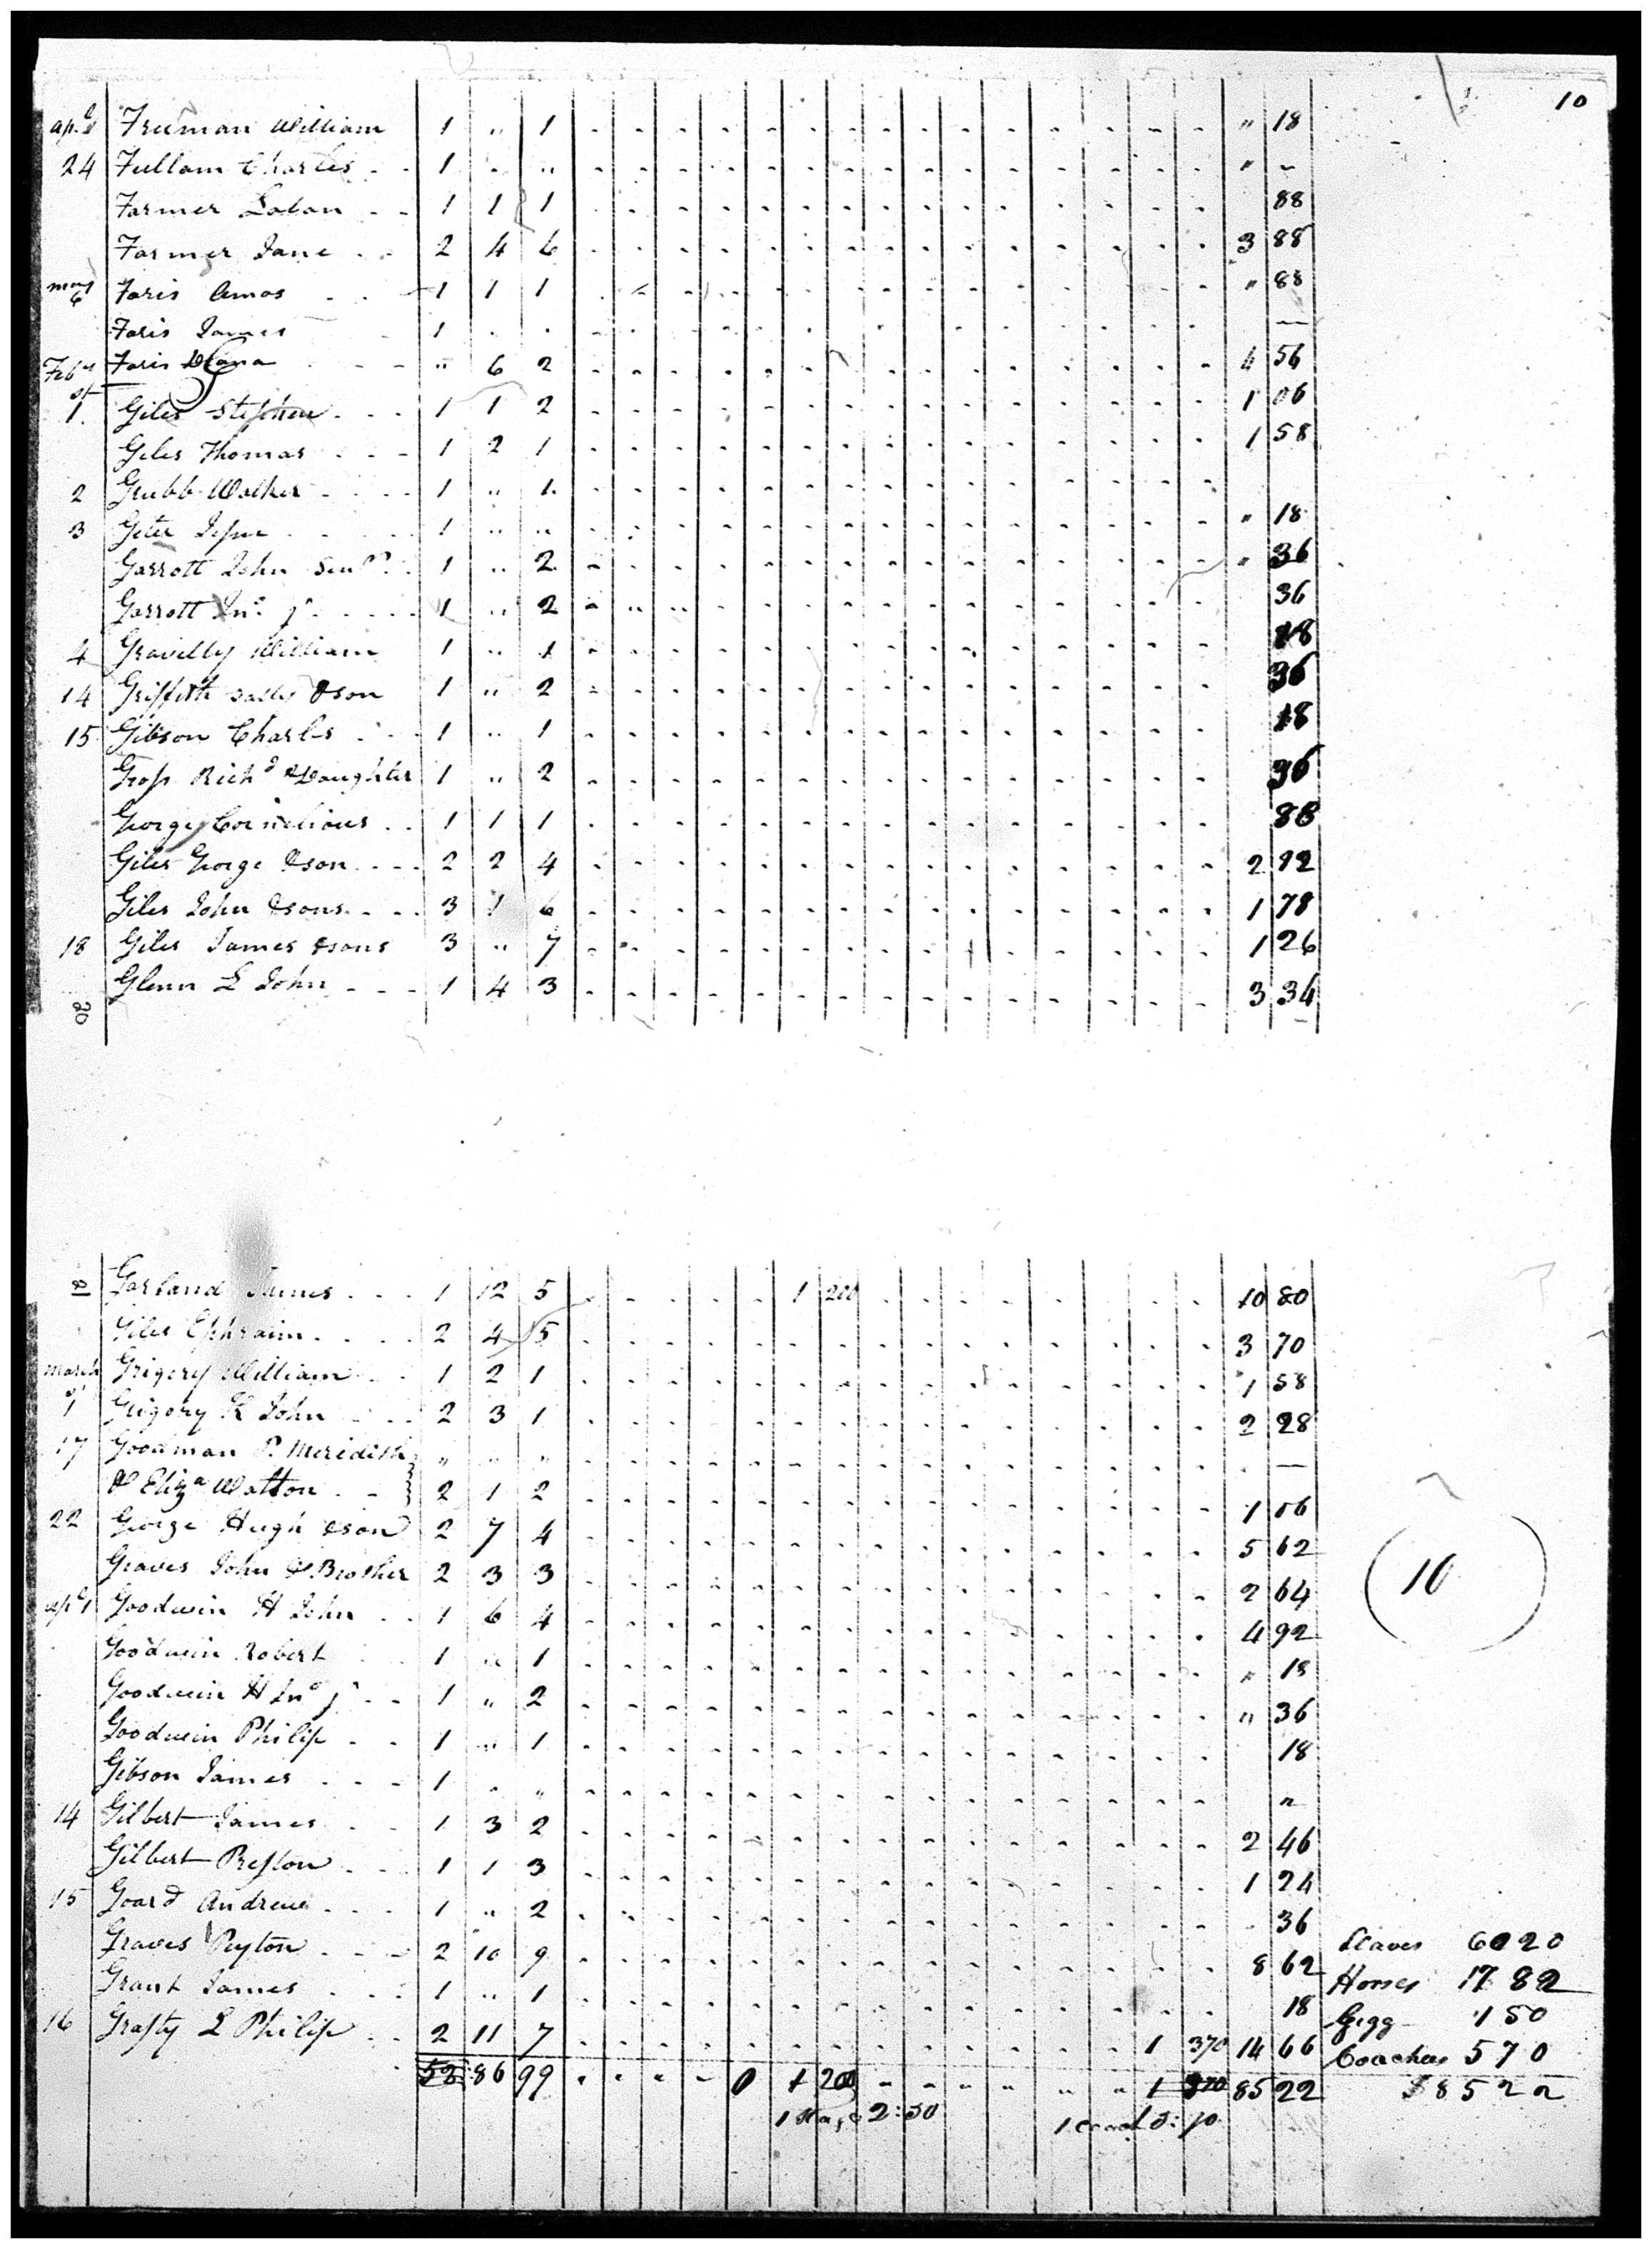 10
Apl Freeman William 1 " 1 " 18
24 Fullam Charles 1 " " "
Farmer Laban 1 1 1 88
Farmer Jane 2 4 6 3 88
May 6 Faris Amos 1 1 1 " 88
Faris James 1
Faris Diana " 6 2 4 56
Feby
1st Giles Stephen 1 1 2 1 06
Giles Thomas 1 2 1 1 58
2 Grubb Walker 1 " 1
3 Geter 1 " " " 18
Garrott John Senr 1 " 2 " 36
Garrott Jno jr 1 " 2 36
4 Gravelly William 1 " 1 18
14 Griffith Sally & son 1 " 2 36
15 Gibson Charles 1 " 1 18
Gross Richd & Daughter 1 " 2 36
George Cornelious 1 1 1 88
Giles George & son 2 2 4 2 92
Giles John & sons 3 1 6 1 78
18 Giles James & sons 3 " 7 1 26
20 Glenn L John 1 4 3 3 34
Garland James 1 12 5 1 200 10 80
Giles Ephraim 2 4 5 3 70
March Grigory William 1 2 1 1 58
1 Grigory K John 2 3 1 2 28
17 Goodman P. Meridith " " "
& Eliza Watton 2 1 2 1 06
22 George Hugh & son 2 7 4 5 62
Graves John & Brother 2 3 3 2 64
Apl 1 Goodwin H John 1 6 4 4 92
10
Goodwin Robert 1 " 1 " 18
Goodwin H Jno jr 1 " 2 " 36
Goodwin Philip 1 " 1 18
Gibson James 1 " "
14 Gilbert James 1 3 2 2 46
Gilbert Preston 1 1 3 1 24
15 Goard Andrew 1 " 2 36
Graves Peyton 2 10 9 8 62
Grant James 1 " 1 18
16 Grasty L Philip 2 11 7 1 370 14 66
52 86 99 0 1 200 1 370 85 22
1 Stage 2:50 1 coach 5:70
Slaves 6020
Horses 1782
Gigg 150
Coaches 570
$8522